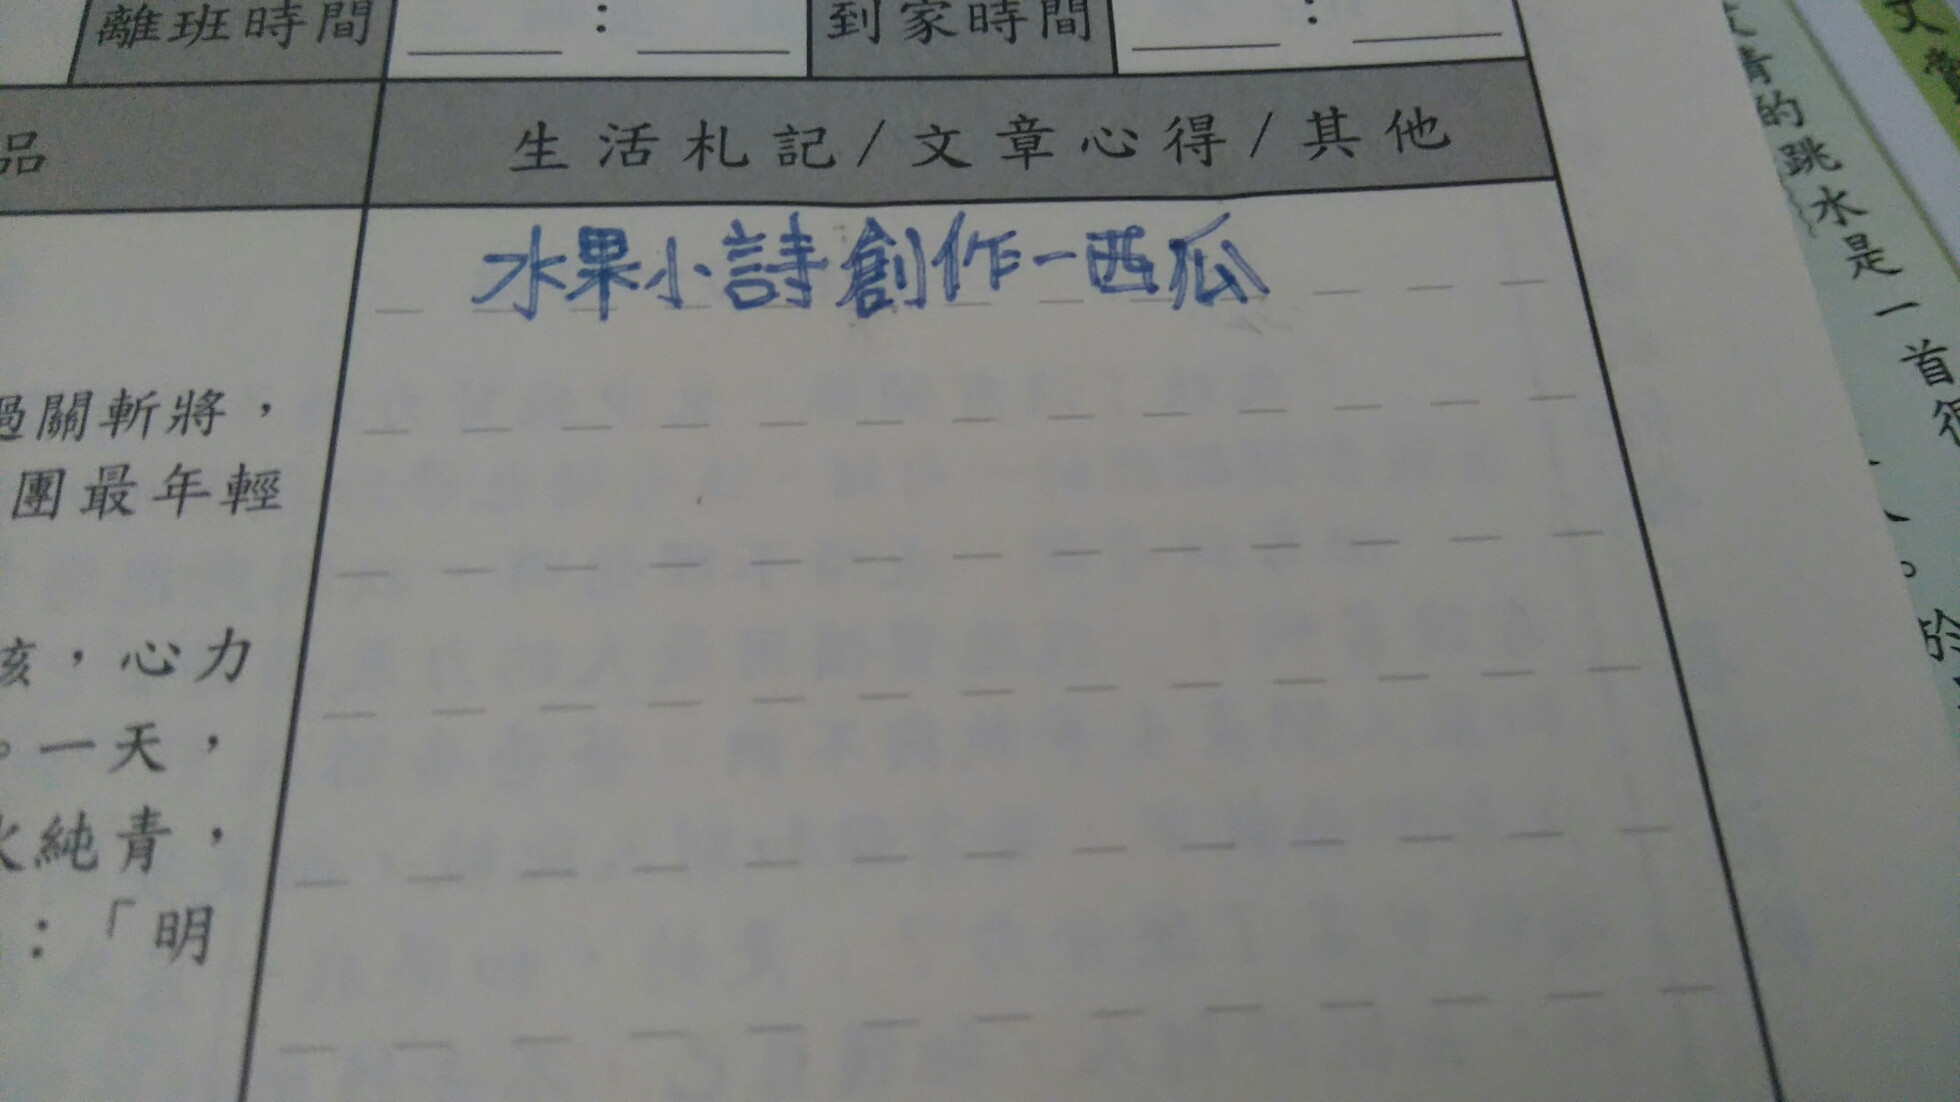 離班時間 : 到家時間 :
品 生活札記/文章心得/其他
水果小詩創作-西瓜
過關斬將，
團最年輕
，心力
。一天，
火純青，
：「明
青的跳水是一首很